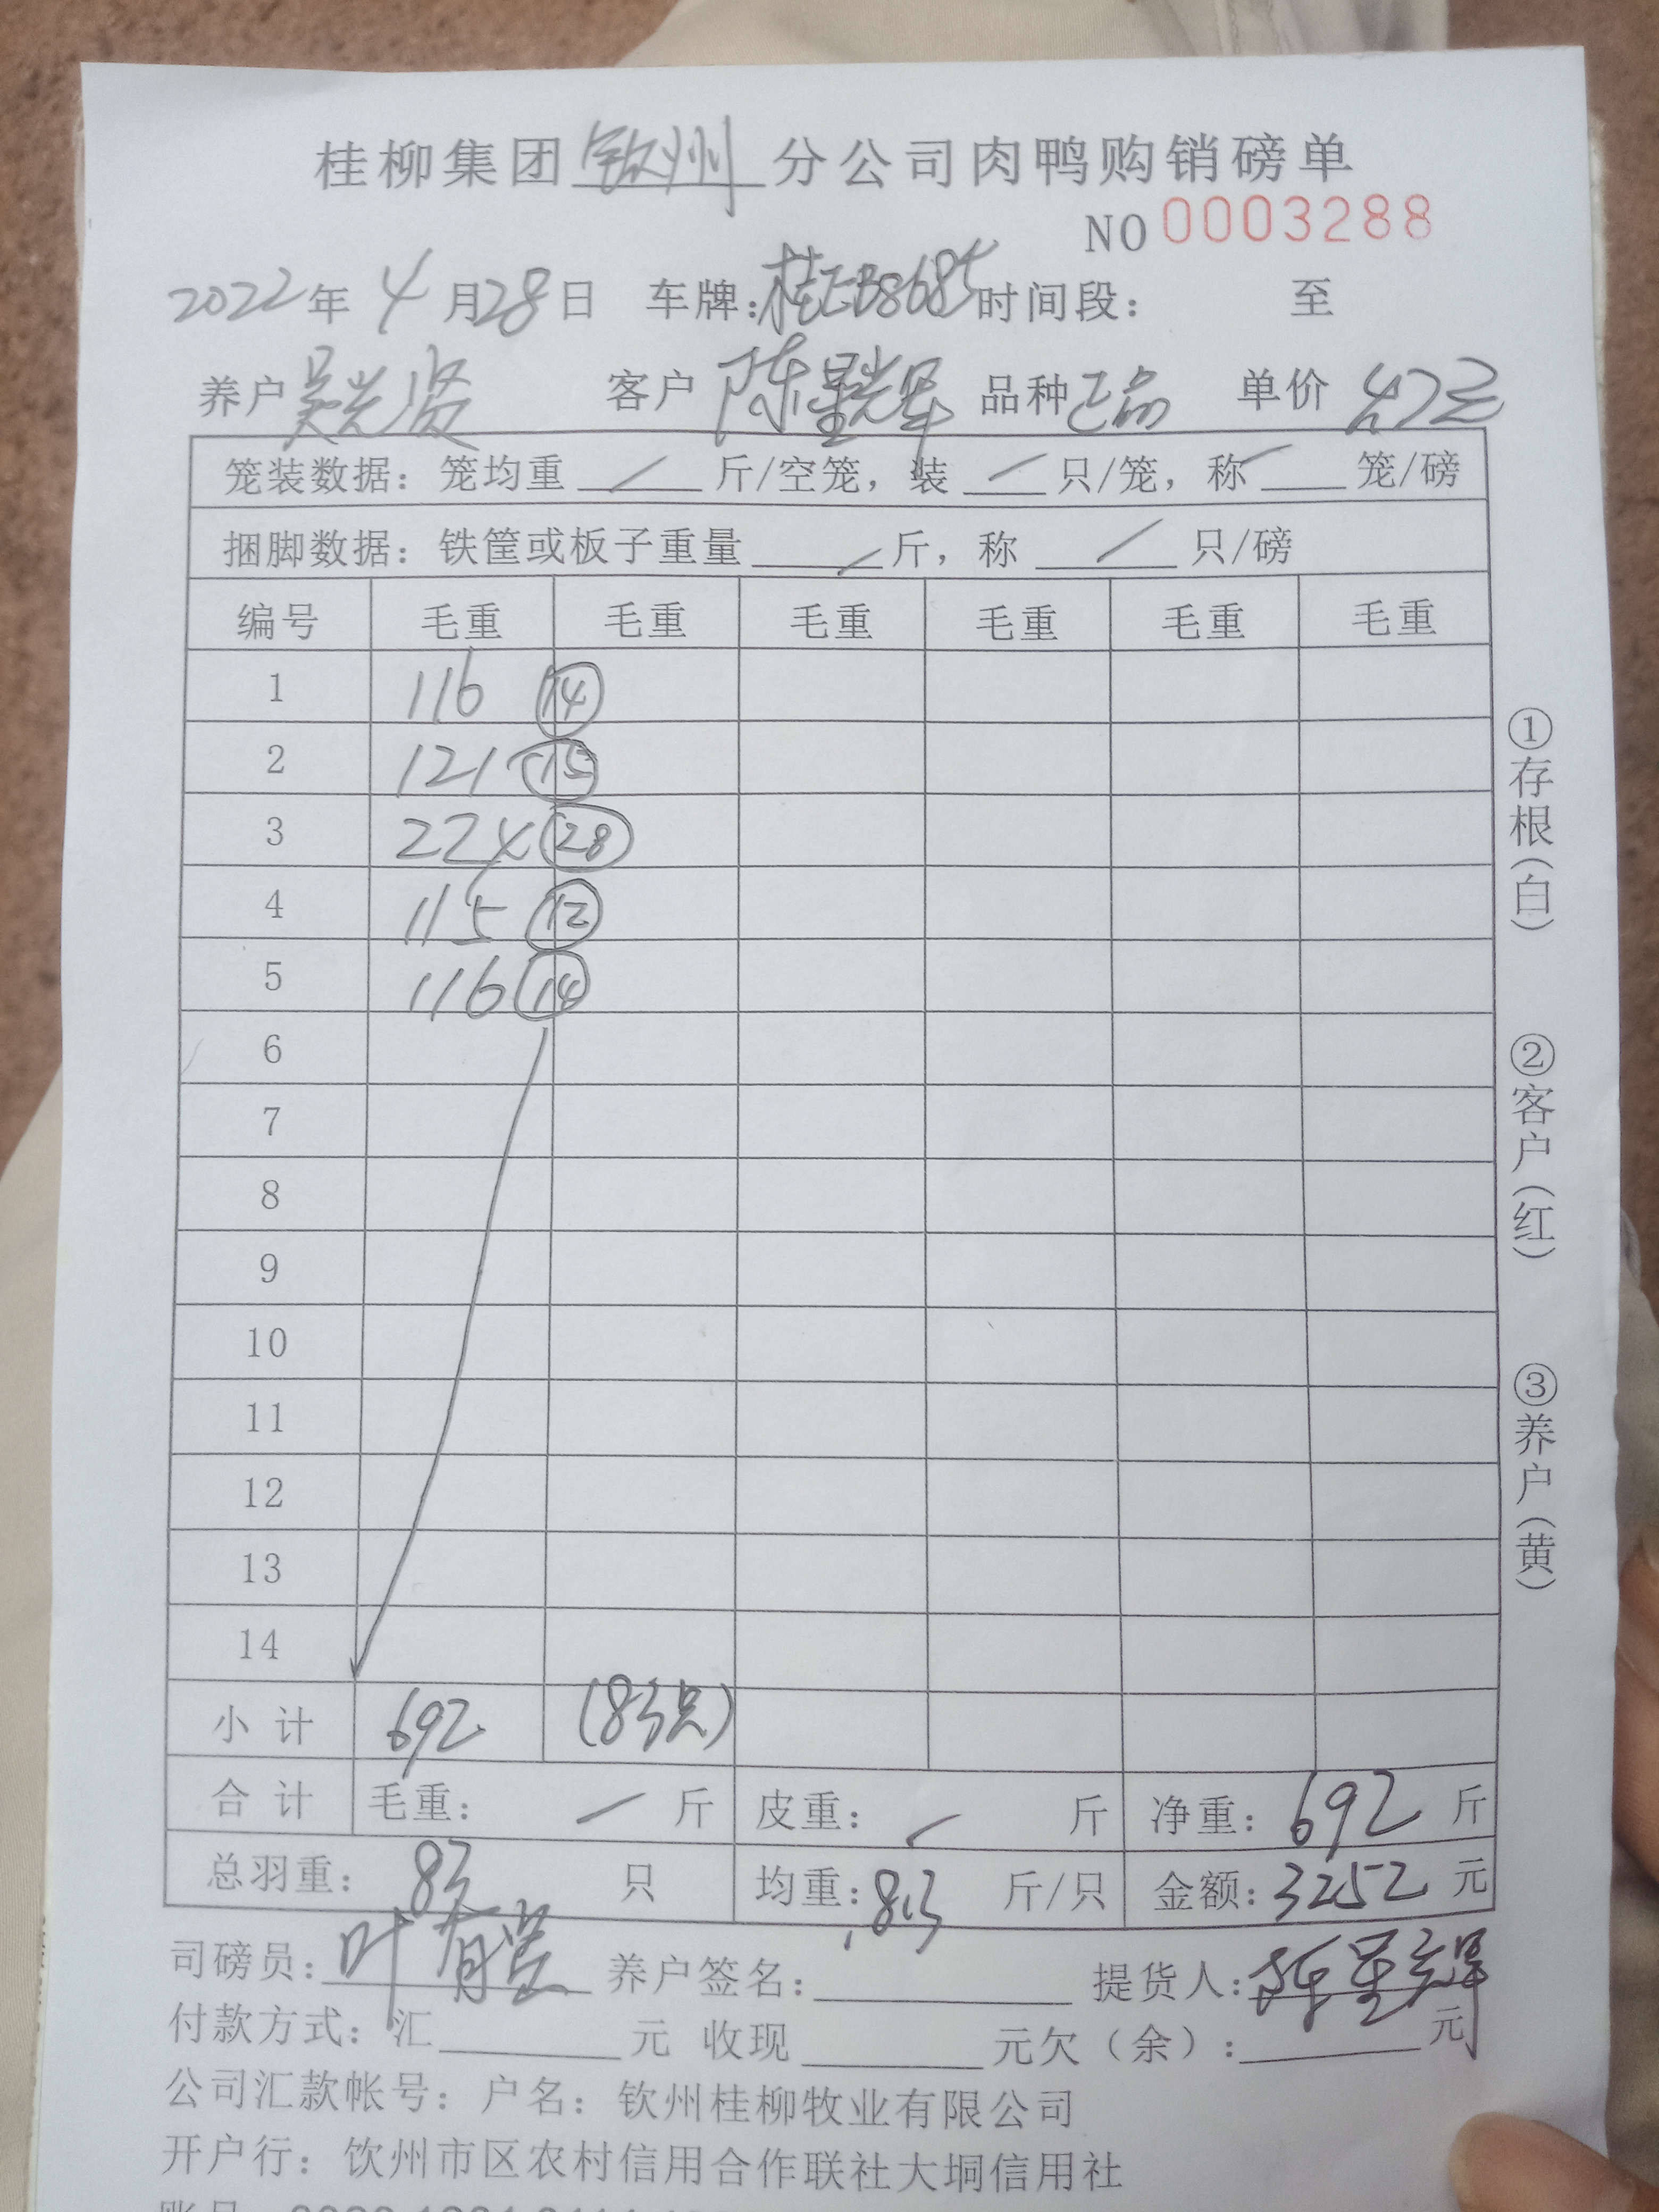 桂柳集团钦州分公司肉鸭购销磅单
NO 0003288
2022年4月28日 车牌:桂EB8685 时间段: 至
养户 吴光贤 客户 陈星辉 品种 正品 单价 4.7元
笼装数据:笼均重 / 斤/空笼,装 / 只/笼,称 / 笼/磅
捆脚数据:铁筐或板子重量 / 斤,称 / 只/磅
编号 毛重 毛重 毛重 毛重 毛重 毛重
1 116 14
2 121 15
3 224 28
4 115 12
5 116 14
6
7
8
9
10
11
12
13
14
小计 692 (83只)
合计 毛重: / 斤 皮重: / 斤 净重:692 斤
总羽重: 83 只 均重:8.3 斤/只 金额:3252 元
司磅员:叶有 养户签名: 提货人:陈星辉
付款方式:汇 元 收现 元欠(余): 元
公司汇款帐号:户名:钦州桂柳牧业有限公司
开户行:钦州市区农村信用合作联社大垌信用社
①存根(白) ②客户(红) ③养户(黄)